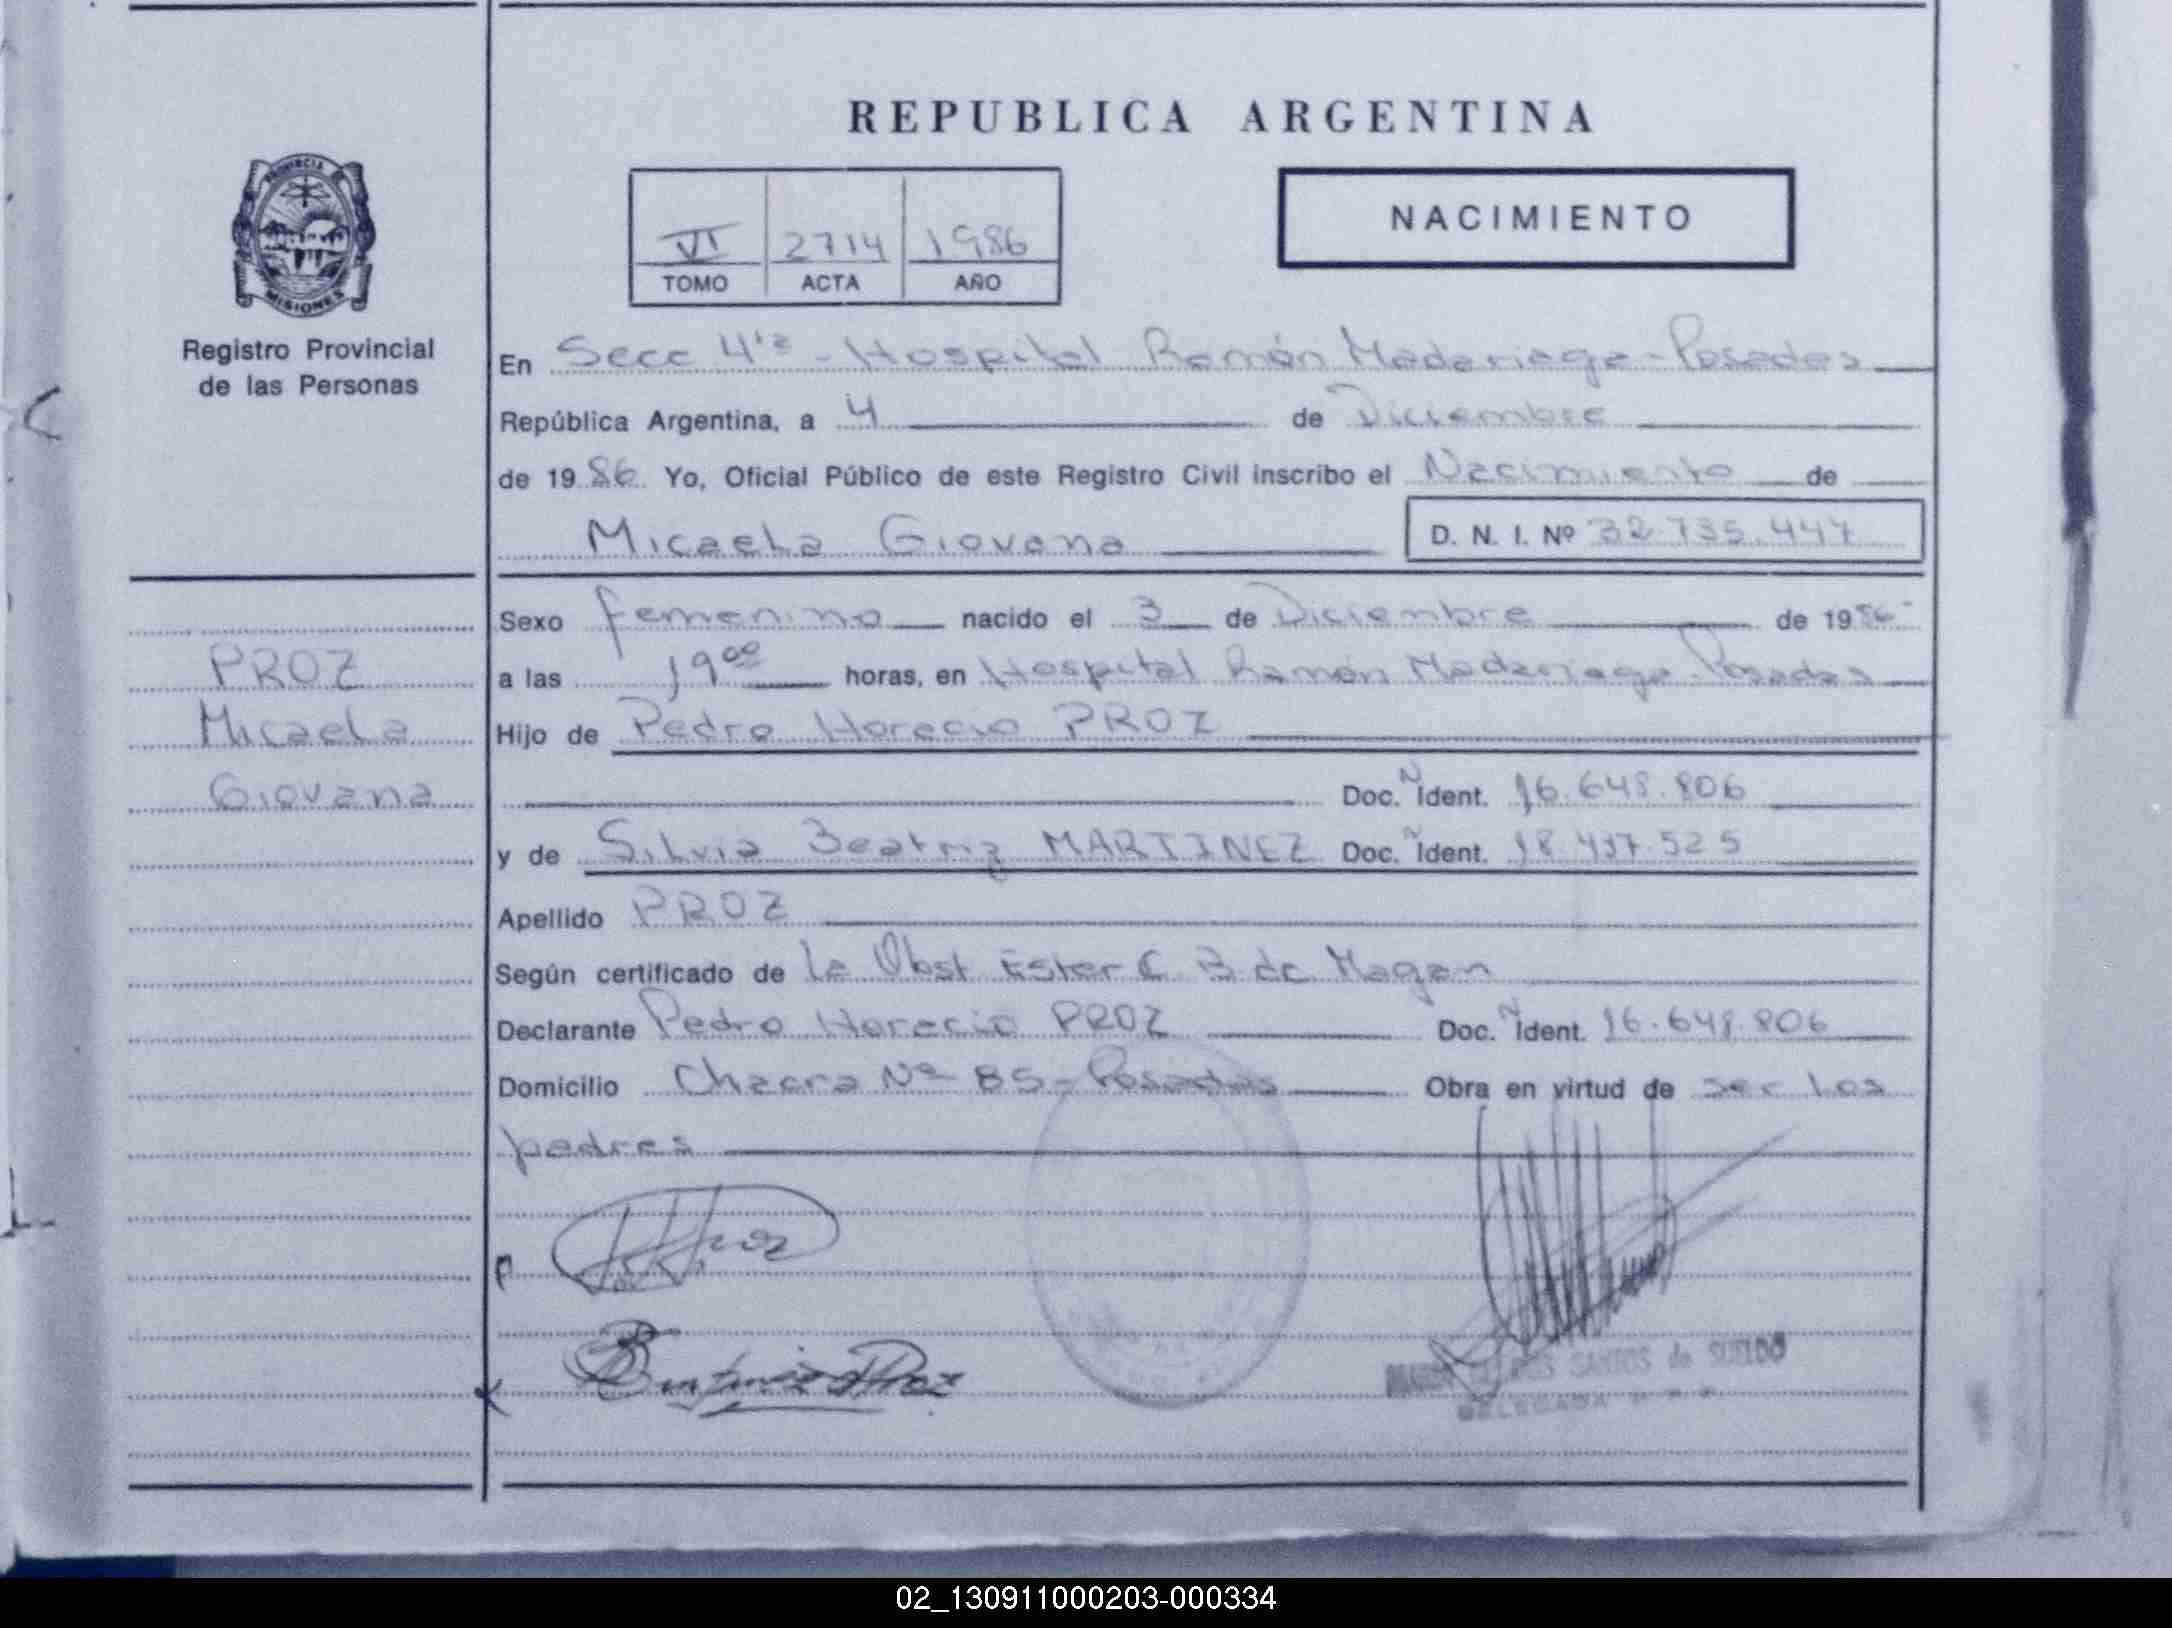 REPUBLICA ARGENTINA
PROVINCIA
MISIONES
Registro Provincial
de las Personas
VI 2714 1986
TOMO ACTA AÑO
NACIMIENTO
En Secc 4ta - Hospital Ramón Madariaga - Posadas
República Argentina, a 4 de Diciembre
de 1986 Yo, Oficial Público de este Registro Civil inscribo el Nacimiento de
Micaela Giovana D. N. I. Nº 32.735.447
PROZ
Micaela
Giovana
Sexo femenino nacido el 3 de Diciembre de 1986
a las 19 00 horas, en Hospital Ramón Madariaga - Posadas
Hijo de Pedro Horacio PROZ
Doc. N Ident. 16.648.806
y de Silvia Beatriz MARTINEZ Doc. N Ident. 18.437.525
Apellido PROZ
Según certificado de la Obst Ester C B de Magan
Declarante Pedro Horacio PROZ Doc. N Ident. 16.648.806
Domicilio Chacra Nº 85 - Posadas Obra en virtud de ser los
padres
SANTOS de SUELDO
DELEGADA
02_130911000203-000334